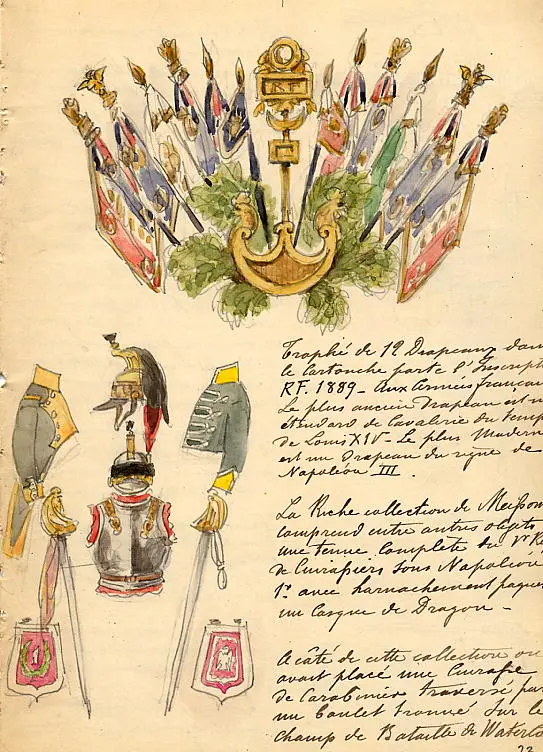 RF
Trophée de 12 Drapeaux dan
le Cartouche porte l'Inscript
RF. 1889 - aux Armées françai
Le plus ancien Drapeau est u
étendard de Cavalerie du temp
de Louis XIV - Le plus Moderne
est un Drapeau du règne de
Napoléon III.
La Riche collection de Meisson
comprend entre autres objets
une tenue complète du 1er
de Cuirassiers sous Napoléon
1er avec harnachement
un Casque de Dragon -
A côté de cette collection on
avait placé une Cuirasse
de Carabinier traversée par
un boulet trouvée sur le
champ de Bataille de Waterlo
1